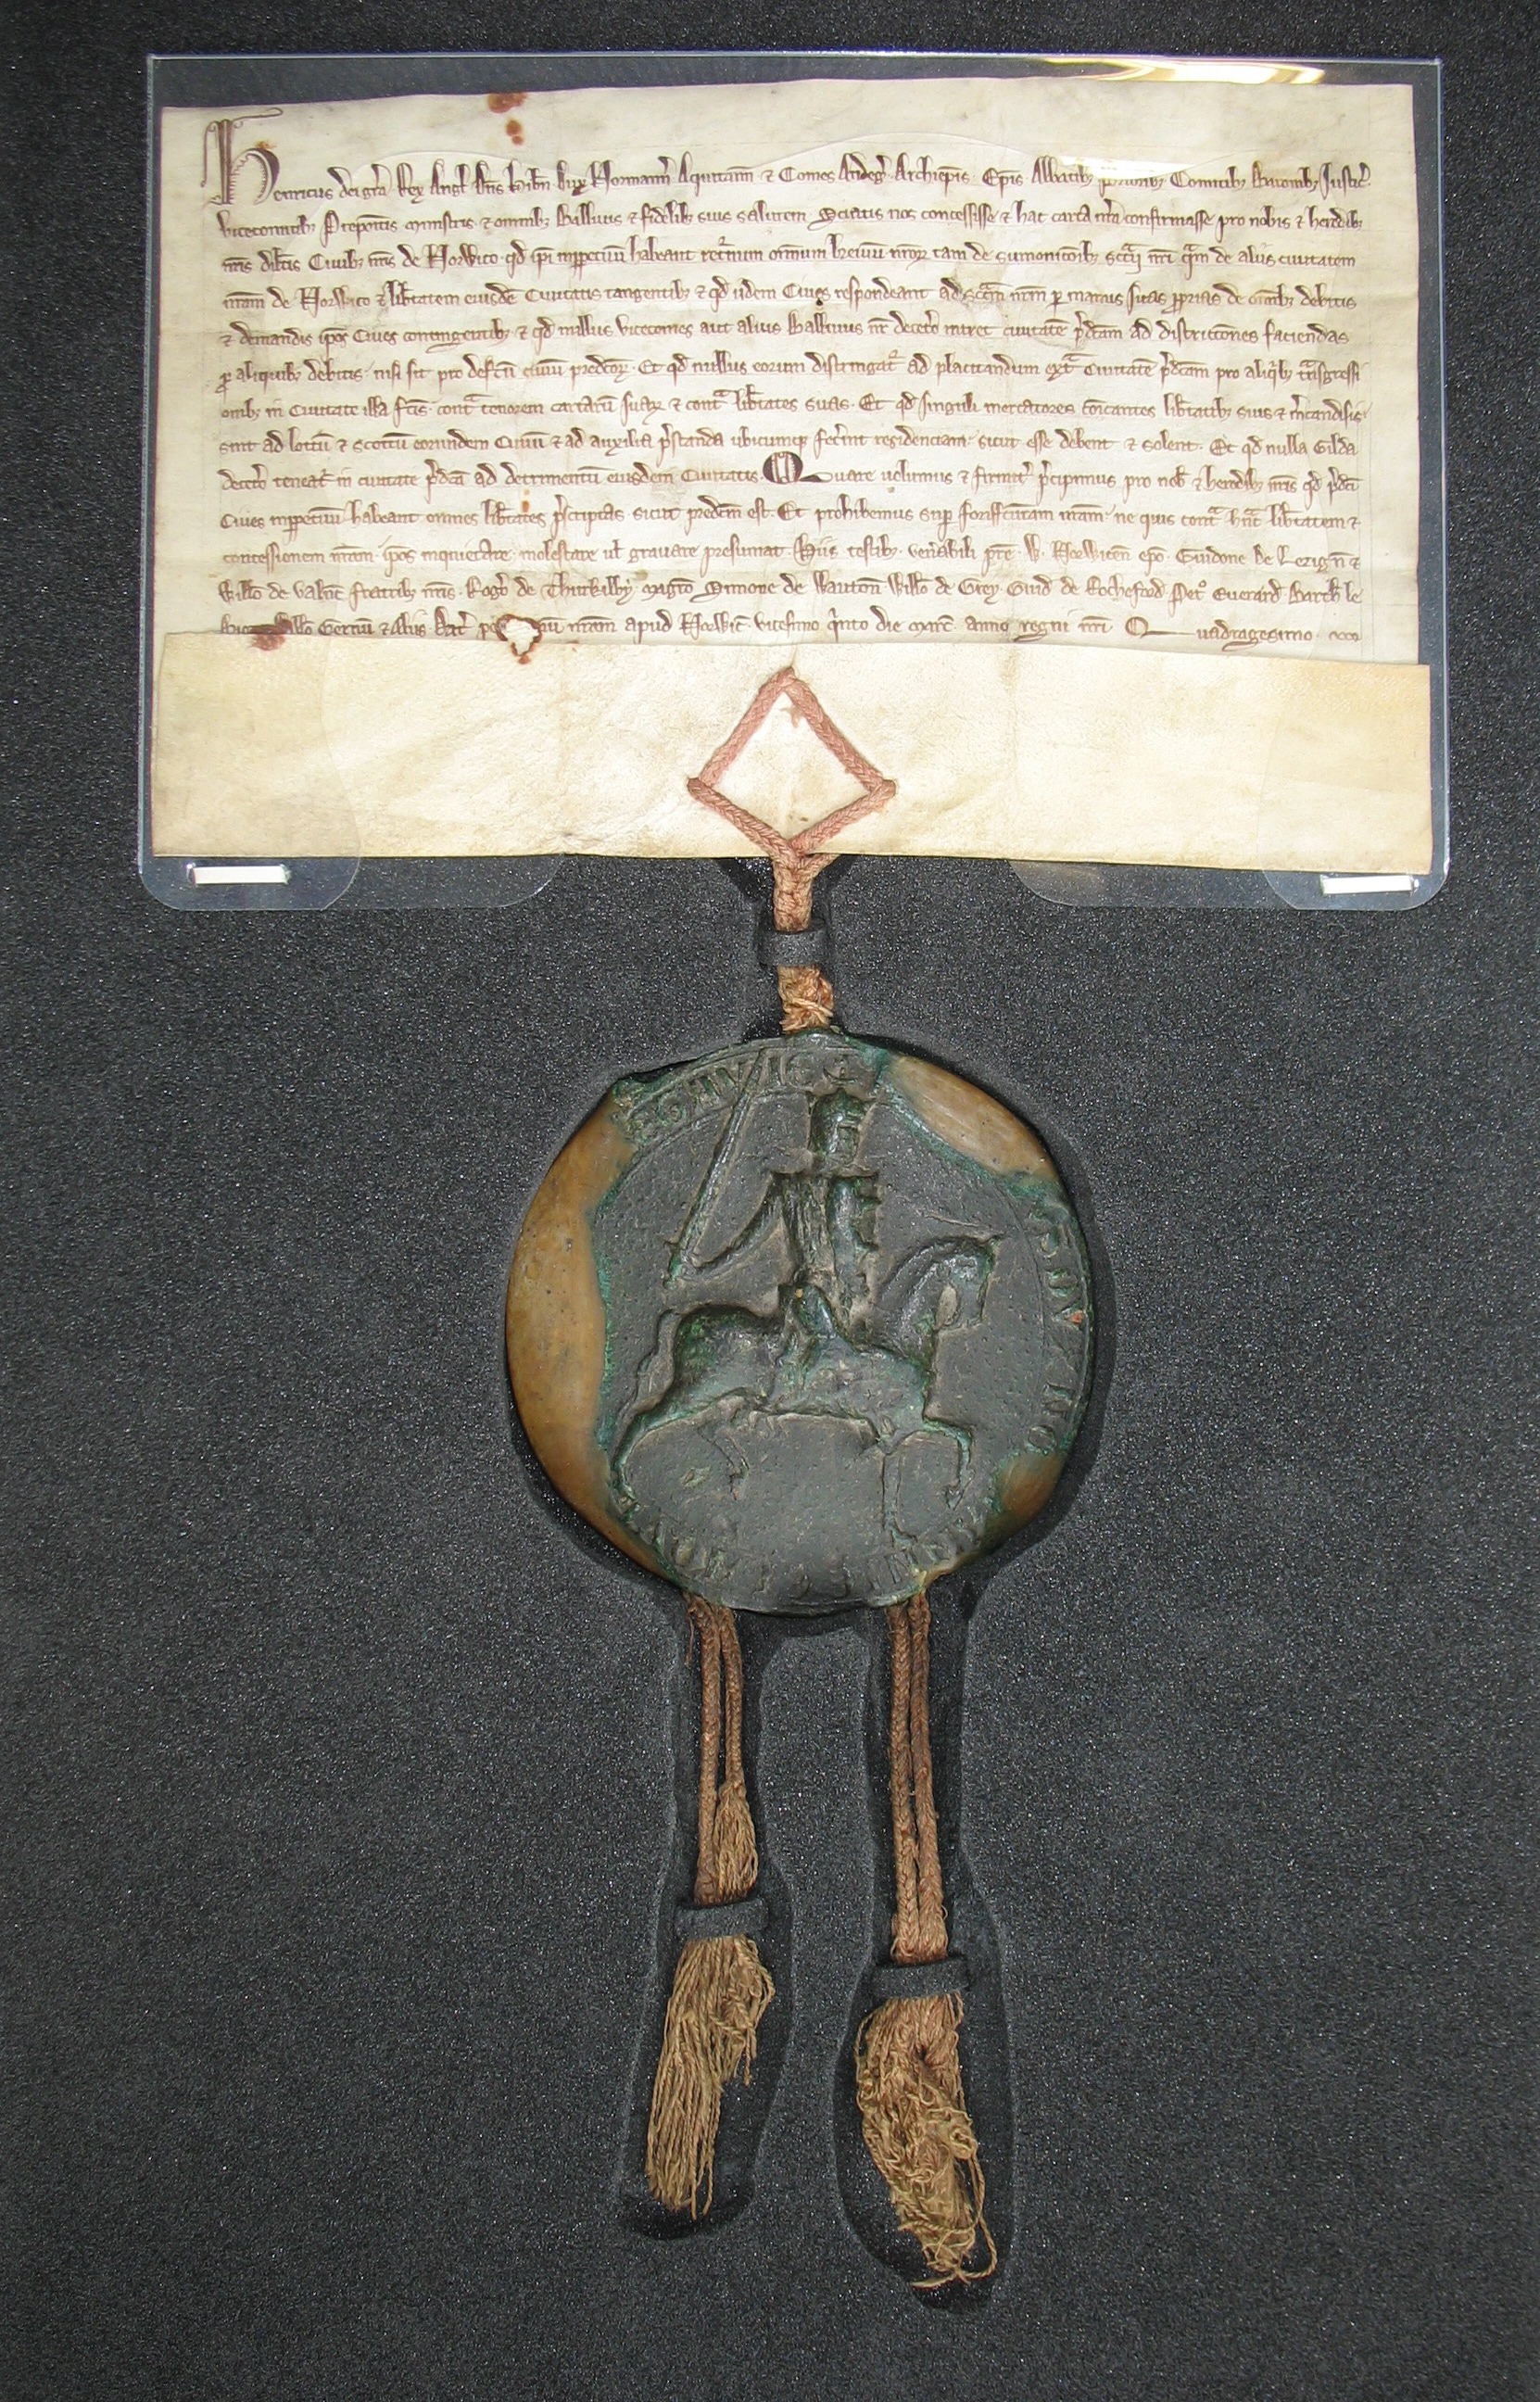 Henricus dei gra Rex Angl Dns Hibn Dux Normann Aquitann & Comes Andeg Archiepis Epis Abbatib Comitib Baronib Justic
vicecomitib Prepositis ministris & omnib Ballivis & fidelib suis salutem Sciatis nos concessisse & hac carta nra confirmasse pro nobis & heredib
nris dilcis Civib nris de Norwico qd ipi inppetuum habeant returnum omnium brevium nror tam de sumonicoib sccarii nri qam de aliis civitatem
nram de Norwico & libtatem eiusde Civitatis tangentib & qd iidem Cives respondeant ad sccrm nrm p manus suas pprias de omib debitis
& demandis ipos Cives contingentib & qd nullus vicecomes aut alius Ballivus nr decetero intret civitate pdcam ad districcones faciendas
p aliquib debitis nisi sit pro defcu civiu predcor Et qd nullus eorum distringat ad placitandum extra Civitate pdcam pro aliqib tnsgressi
onib in Civitate illa fcis contra tenorem cartaru suar & contra libtates suas Et qd singuli mercatores coicantes libtatib suis & mcandisis
sint ad lottu & scottu eorundem Civiu & ad auxilia pstanda ubicumq fecint residenciam sicut esse debent & solent Et qd nulla Gilda
decetero teneat in civitate pdca ad detrimentu eiusdem Civitatis Quare volumus & firmit pcipimus pro nob & heredib nris qd pdci
Cives inppetuum habeant omnes libtates pscriptas sicut predcm est Et prohibemus sup forisfcuram nram ne quis contra hanc libtatem &
concessionem nram ipos inquietare molestare ul gravare presumat Hiis testib venabili pre W Norwicen epo Guidone de Lezign &
Willo de Valenc fratrib nris Rogo de Thurkilby magro Simone de Wauton Willo de Grey Guid de Rocheford Petr Everard Barth le
Willo Gernu & Aliis Dat p nram apud Norwic vicesimo qinto die marc anno regni nri Quadragesimo